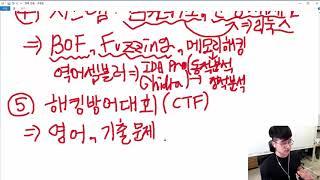 ⇒ 리눅스
⇒ BOF, Fuzzing, 메모리해킹
역어셈블러 ⇒ IDA Pro) 동적분석
Ghidra → 정적분석
⑤ 해킹방어대회 (CTF)
⇒ 영어, 기출문제